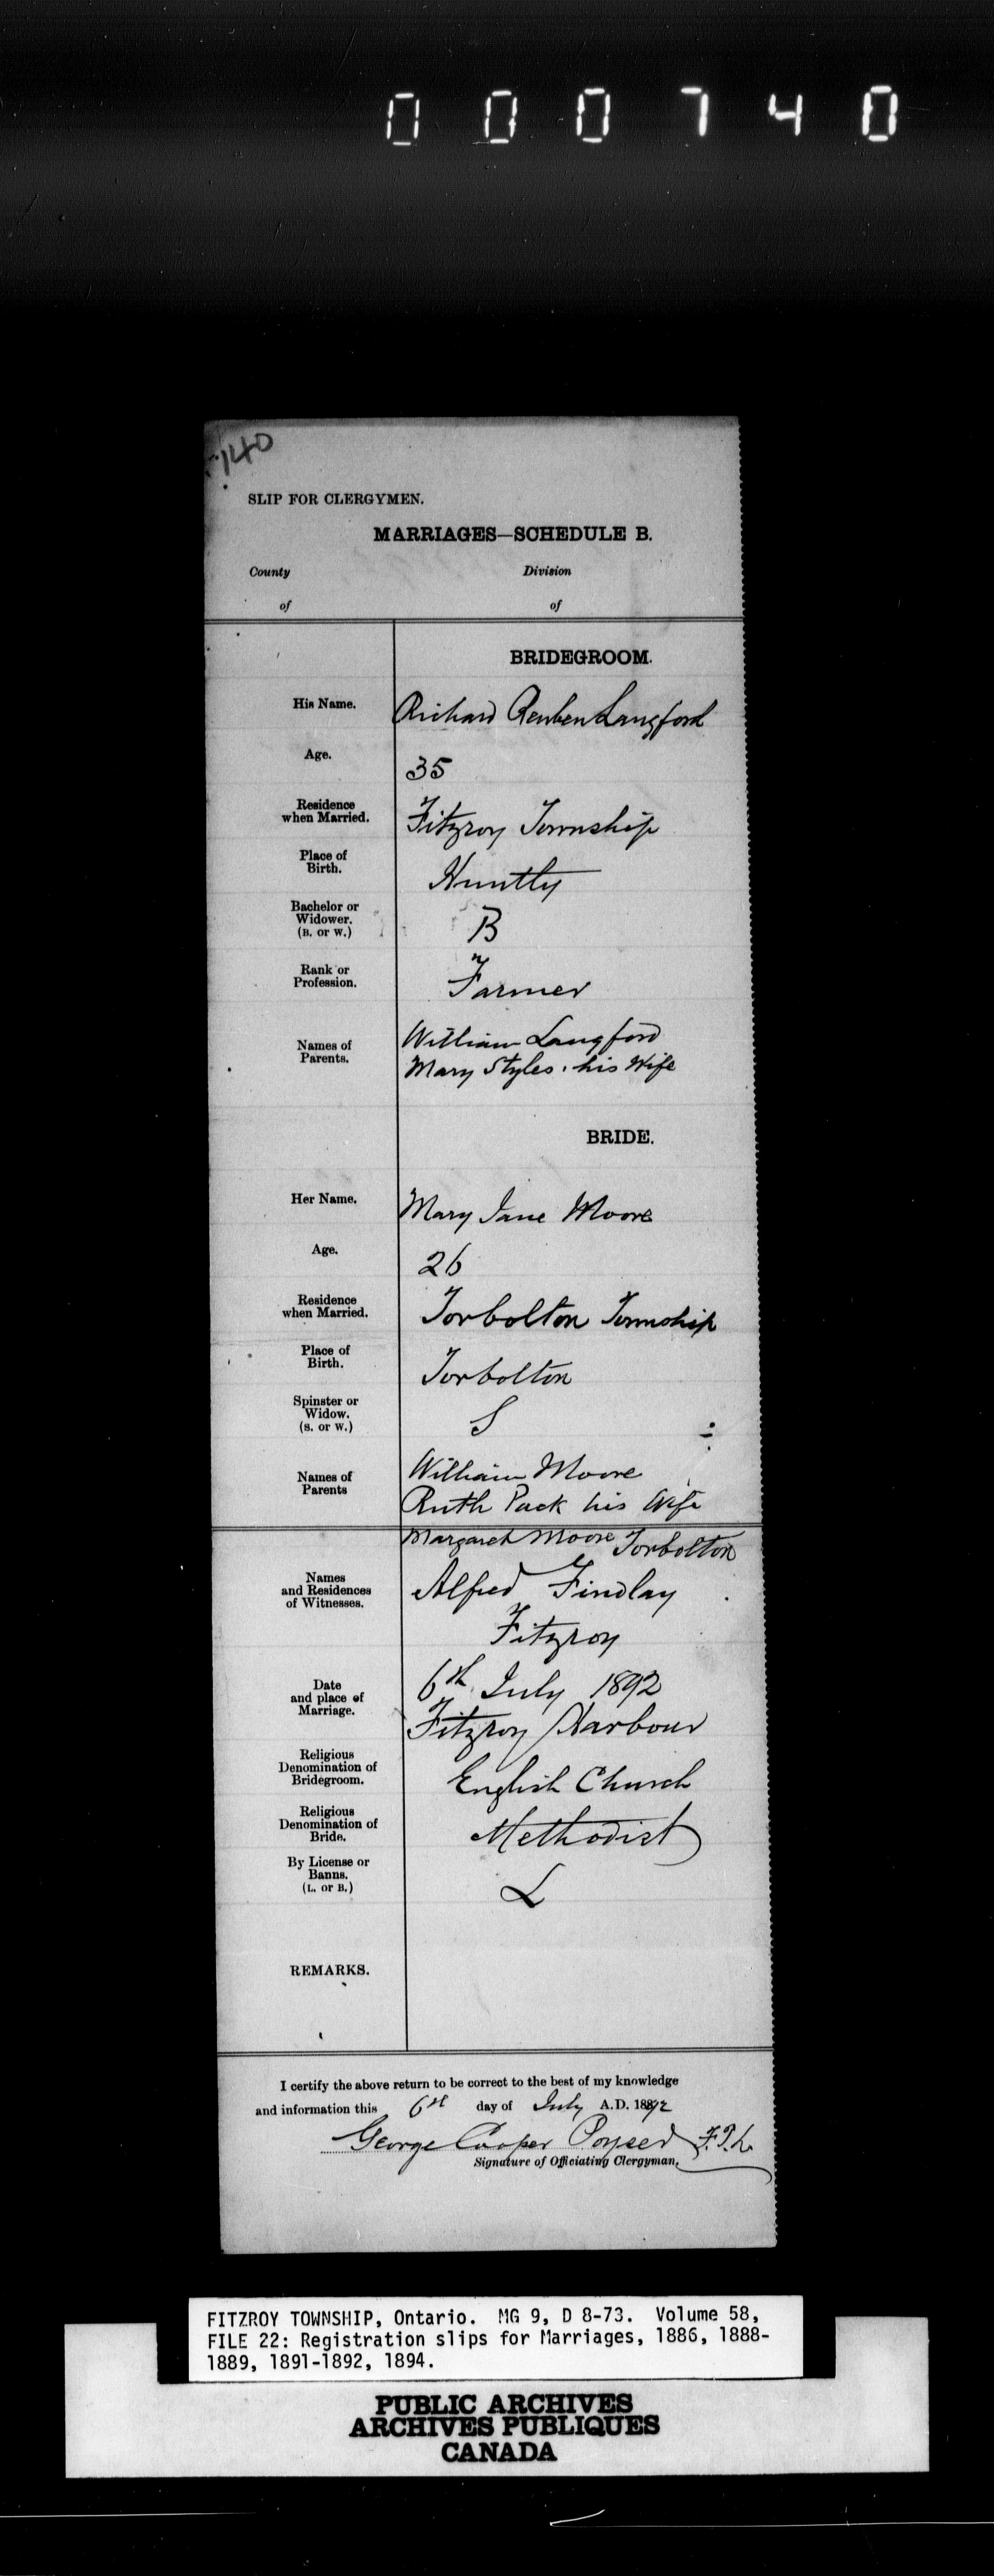 000740
740
SLIP FOR CLERGYMEN.
MARRIAGES—SCHEDULE B.
County Division
of of
BRIDEGROOM.
His Name. Richard Reuben Langford
Age. 35
Residence
when Married. Fitzroy Township
Place of
Birth. Huntly
Bachelor or
Widower.
(B. or W.) B
Rank or
Profession. Farmer
Names of
Parents. William Langford
Mary Styles. his Wife
BRIDE.
Her Name. Mary Jane Moore
Age. 26
Residence
when Married. Torbolton Township
Place of
Birth. Torbolton
Spinster or
Widow.
(S. or W.) S
Names of
Parents William Moore
Ruth Pack his Wife
Margaret Moore Torbolton
Names
and Residences
of Witnesses. Alfred Findlay
Fitzroy
Date
and place of
Marriage. 6th July 1892
Fitzroy Harbour
Religious
Denomination of
Bridegroom. English Church
Religious
Denomination of
Bride. Methodist
By License or
Banns.
(L. or B.) L
REMARKS.
I certify the above return to be correct to the best of my knowledge
and information this 6th day of July A.D. 1892
George Cooper Poyser
Signature of Officiating Clergyman.
FITZROY TOWNSHIP, Ontario. MG 9, D 8-73. Volume 58,
FILE 22: Registration slips for Marriages, 1886, 1888-
1889, 1891-1892, 1894.
PUBLIC ARCHIVES
ARCHIVES PUBLIQUES
CANADA